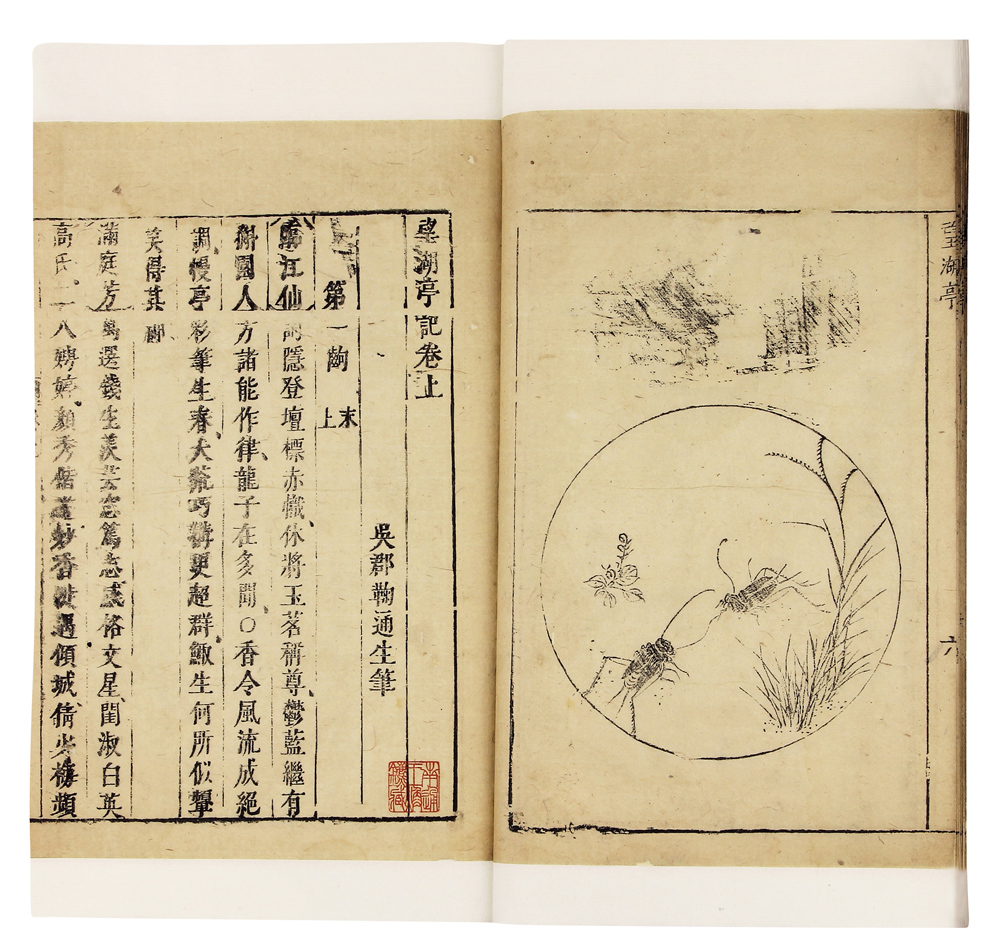 望湖亭
六
望湖亭記卷上
吳郡鞠通生筆
第一齣 末上
臨江仙 詞隱登壇標赤幟休將玉茗稱尊鬱藍繼有
槲園人方諸能作律龍子在多聞○香令風流成絕
調幔亭彩筆生春大荒巧搆更超群鯫生何所似顰
笑得其神
滿庭芳 萬選錢生 篤志感格文星閨淑白英
高氏二八娉婷顏秀 妙香 遇傾城倩少梅頻